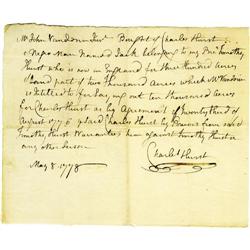 Mr John Vandern Junr Bought of Charles Hurst
a Negro Man Named Jack belonging to my Bro. Timothy
Hurst who is now in England for three Hundred Acres
of Land part of two thousand Acres which Mr Vandern
is Entitled to for Laying out ten thousand Acres
for Charles Hurst as by Agreement of twenty third of
August 1775 & said Charles Hurst by Powers from said
Timothy Hurst Warranties him against Timothy Hurst or
any other Person
Charles Hurst
May 8. 1778